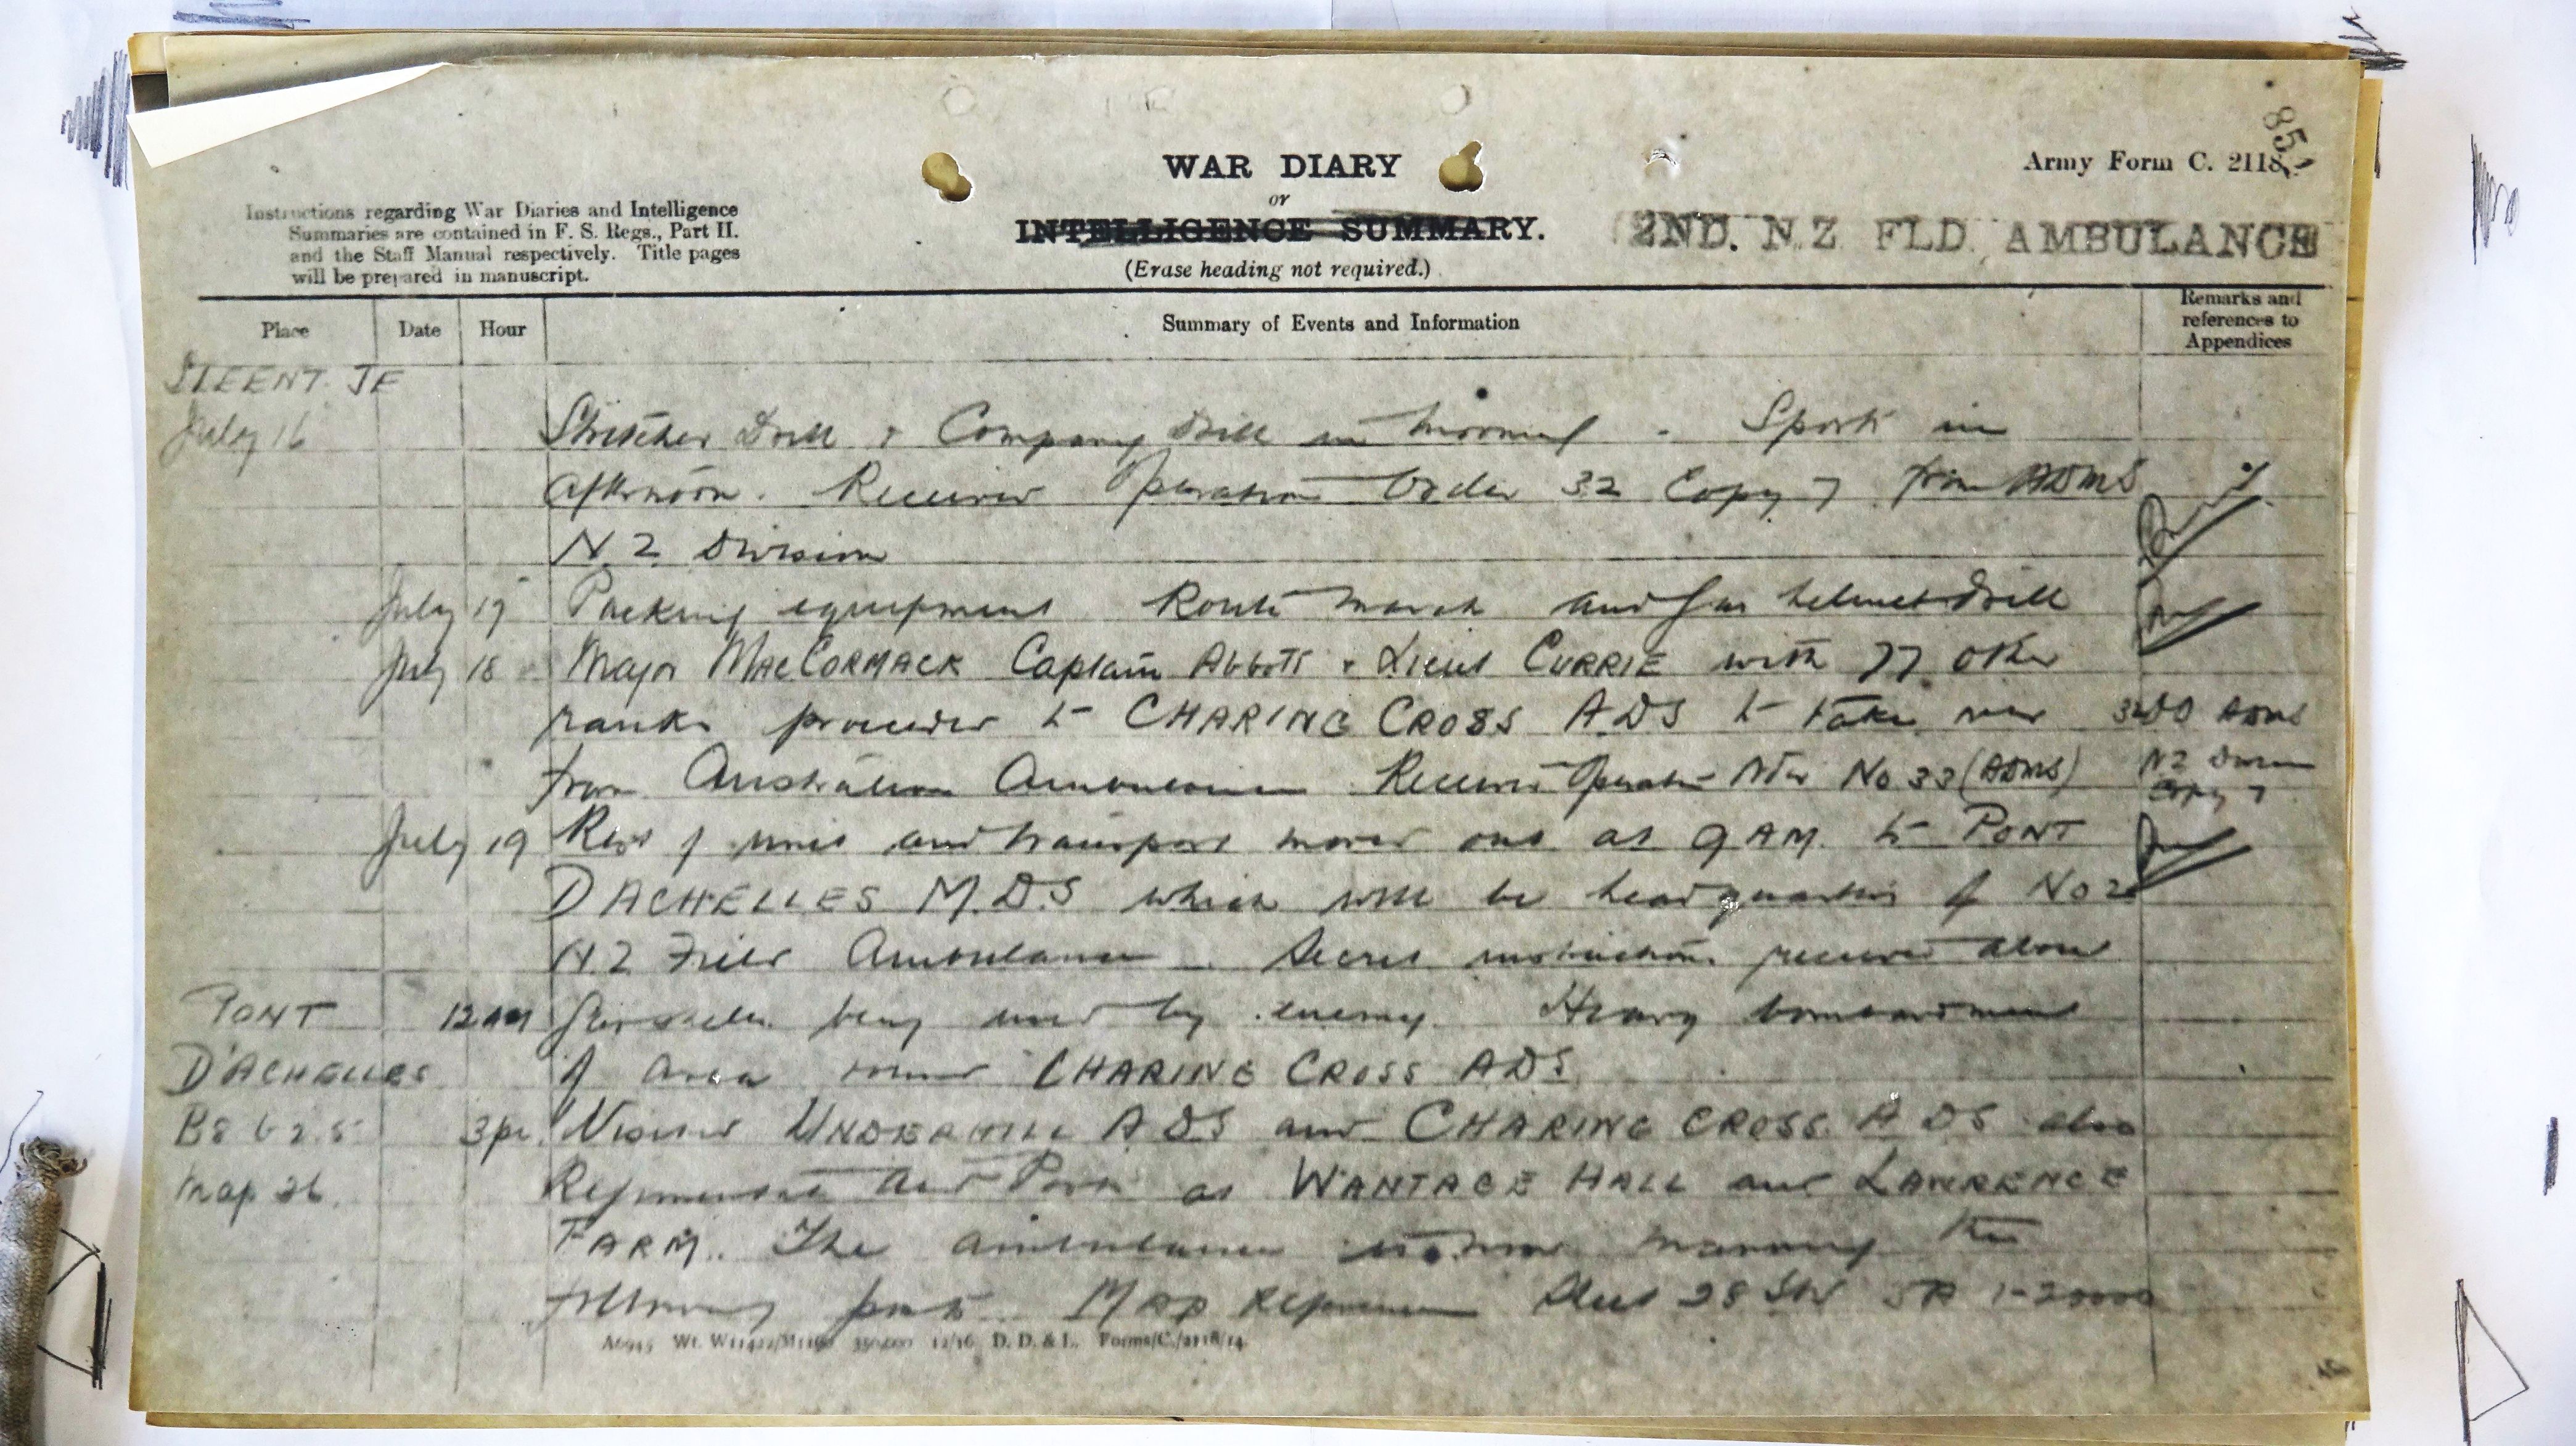 851
WAR DIARY
or
INTELLIGENCE SUMMARY.
(Erase heading not required.)
Army Form C. 2118.
Instructions regarding War Diaries and Intelligence
Summaries are contained in F. S. Regs., Part II.
and the Staff Manual respectively. Title pages
will be prepared in manuscript.
2ND. N Z FLD. AMBULANCE
Place Date Hour Summary of Events and Information Remarks and references to Appendices
STEENT. JE
July 16 Stretcher Drill & Company Drill in morning. Sports in
afternoon. Received Operation Order 32 Copy 7 from ADMS
N Z Division
July 17 Packing equipment Route march and gas helmet drill
July 18 Major MACCORMACK Captain ABBOTT & Lieut CURRIE with 77 other
ranks proceeded to CHARING CROSS ADS to take over
from Australian Ambulance Received Operation Order No 33 (ADMS)
ADMS
N Z Division
Copy 7
July 19 Rest of unit and transport moved out at 9 AM. to PONT
DACHELLES M.D.S which will be headquarters of No 2
N.Z Field Ambulance. Secret instructions received about
PONT 12 gas shells being used by enemy. Heavy bombardment
D'ACHELLES of area round CHARING CROSS ADS
B8 b 2.5 3 pm Visited UNDERHILL ADS and CHARING CROSS ADS also
Map 36. Regimental Aid Posts at WANTAGE HALL and LAWRENCE
FARM. The ambulance is now manning the
following posts. Map Reference Sheet 28 SW 1-20000
12/16 D. D. & L. Forms/C./2118/14.